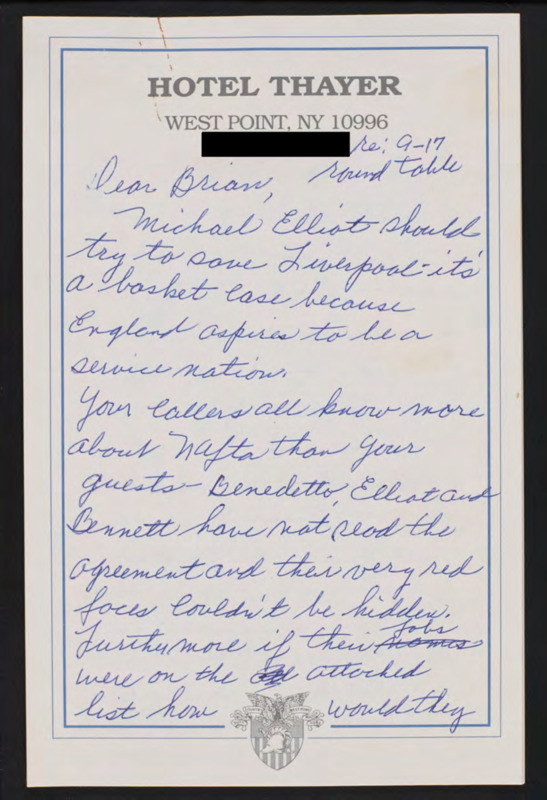 HOTEL THAYER
WEST POINT, NY 10996
re: 9-17
round table
Dear Brian,
Michael Elliot should
try to save Liverpool - it's
a basket case because
England aspires to be a
service nation.
Your callers all know more
about Nafta than your
guests - Benedetto, Elliot and
Bennett have not read the
agreement and their very red
faces couldn't be hidden.
Furthermore if their jobs
were on the attached
list how would they